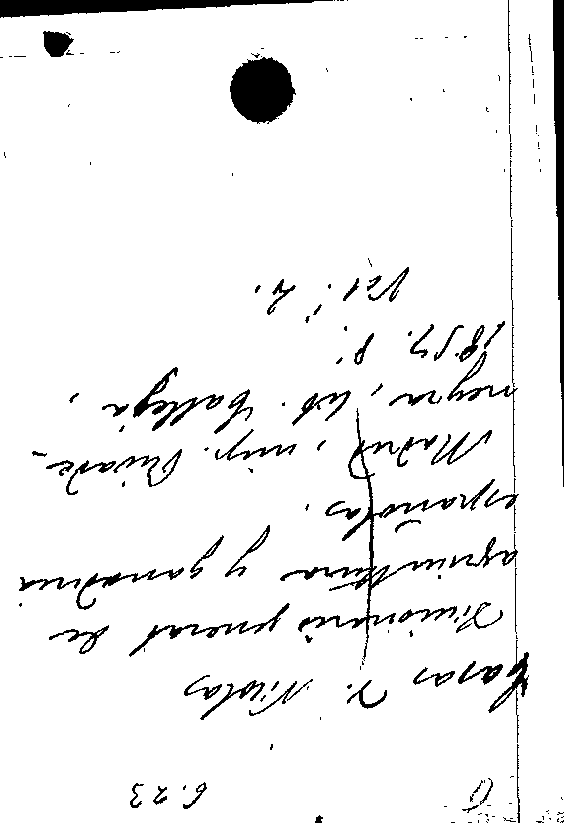 6.23
Casas D. Nicolas
Diccionario general de
agricultura y ganaderia
españolas.
Madrid, imp. Rivade-
neyra, lib. Calleja,
1857. 8º.
Vol. 4.